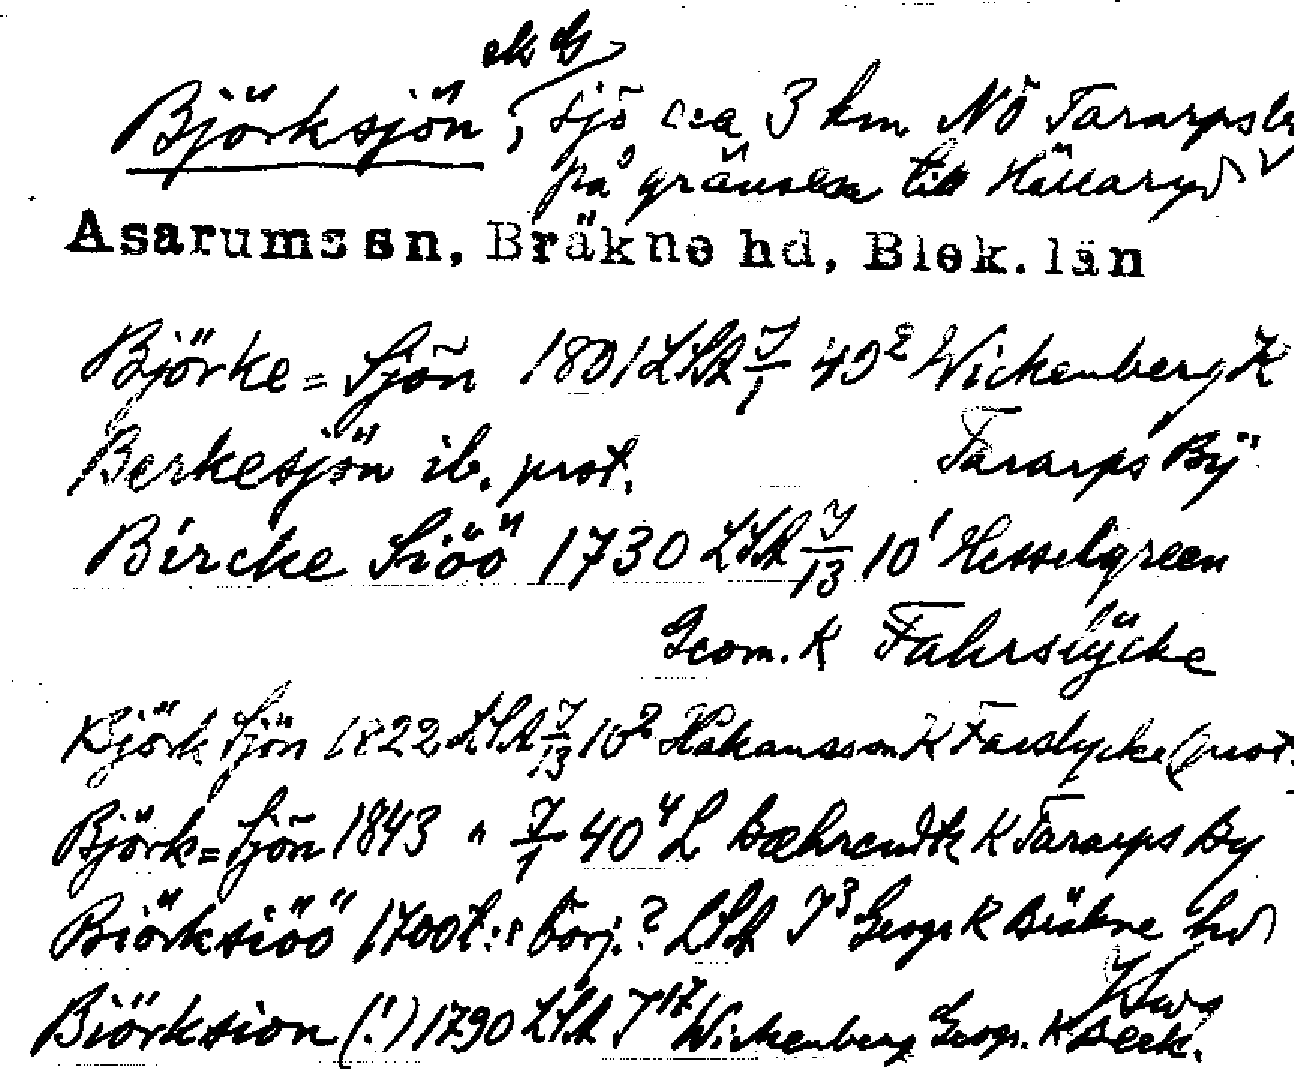 ek G
Björksjön, sjö c:a 3 km NÖ Tararps by
på gränsen till Hällaryd
Asarums sn, Bräkne hd, Blek. län
Björke=Sjön 1801 LSA J/1 40² Wickenberg K
Berkesjön ib. prot. Tararps By
Bircke Siöö 1730 LSA J/13 10¹ Hesselgreen
Geom. K Fahrslÿcke
Björk Sjön 1822 LSA J/13 10² Håkansson K Farslycke (prot.
Björk=Sjön 1843 " J/1 40⁴ L Bæhrendtk K Tararps By
Biörksiöö 1700t:s börj.? LSA J³ Geogr K Bräkne hd
Biörksion (!) 1790 LSA J¹⁷ Wickenberg Geogr. K Bleck.